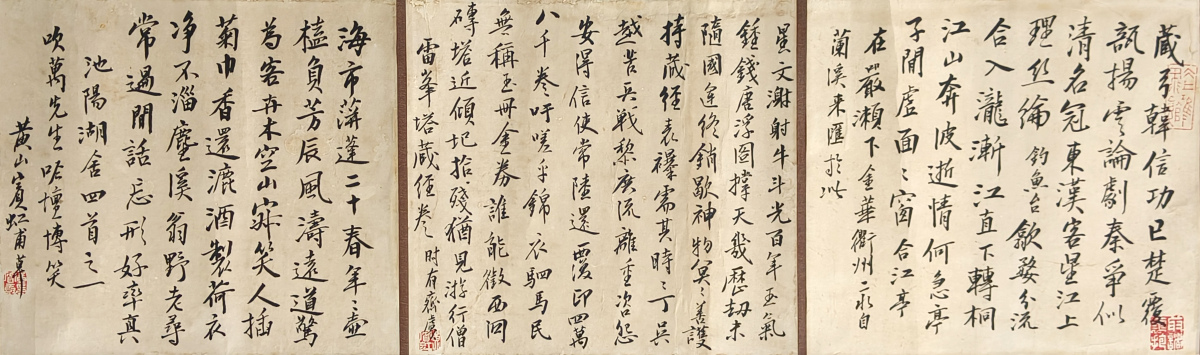 藏弓韓信功已楚覆
瓿揚雲論劇秦爭似
清名冠東漢客星江上
理絲綸 釣魚台 歙婺分流
合入瀧漸江直下轉桐
江山奔波逝情何急亭
子開虛面〻窗 合江亭
在嚴瀨下金華衢州二水自
蘭溪來匯於此
曇文澍射牛斗光百年玉氣
鍾錢唐浮圖撐天幾歷劫未
隨國運終銷歇神物冥〻善護
持藏經表襮需其時〻丁吳
越苦兵戰黎庶流離重咨怨
安得信使常陸還覆印四萬
八千卷吁嗟乎錦衣駟馬民
無稱玉冊金券誰能徵西
磚塔近傾圮拾殘猶見游行僧
雷峯塔藏經卷 時有齋虞
海市萍蓬二十春年〻壺
榼負芳辰風濤遠道驚
為客木空山寂笑人插
菊巾香還漉酒製荷衣
净不淄塵溪翁野老尋
常過閒話忘形好率真
池陽湖舍四首之一
吹萬先生吟壇博笑
黃山賓虹甫草